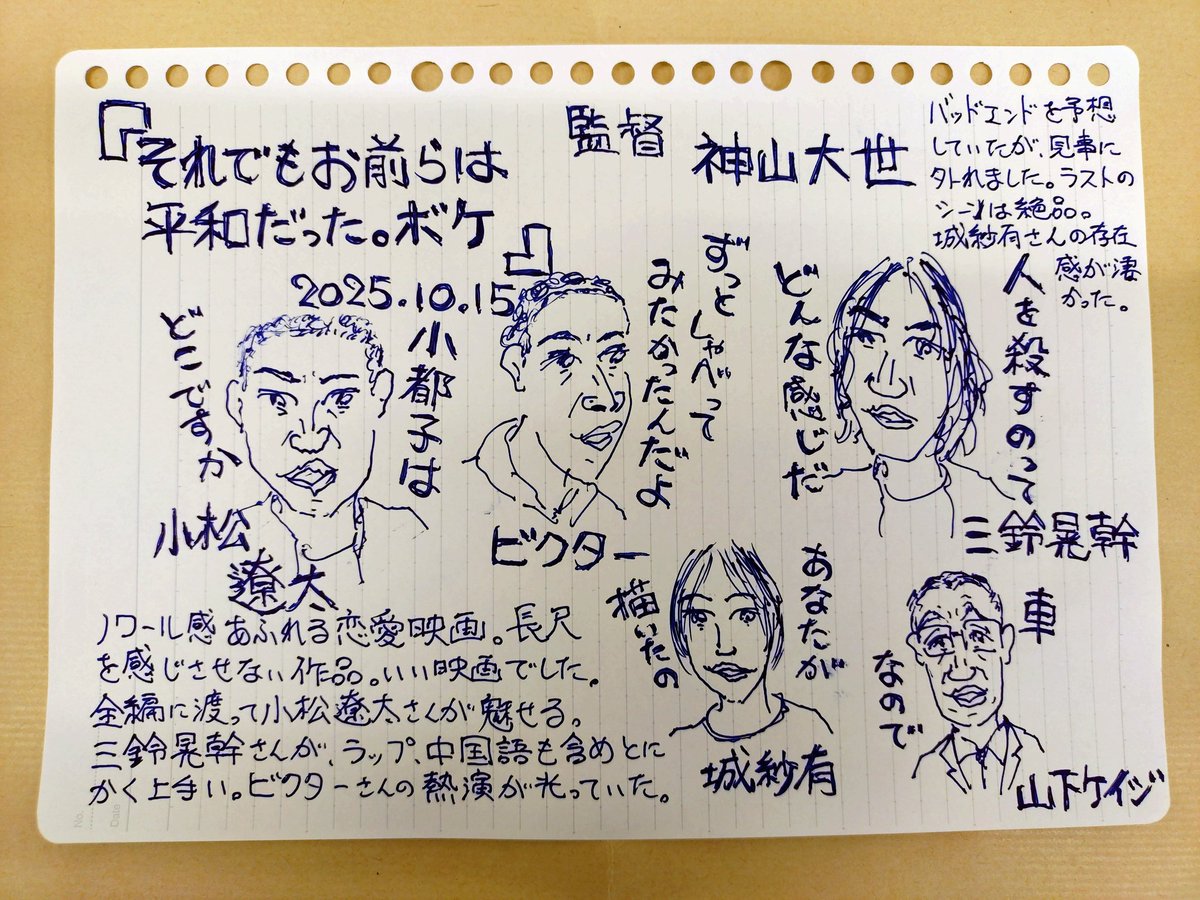 『それでもお前らは
平和だった。ボケ』
2025.10.15
監督
神山大世
バッドエンドを予想
していたが、見事に
外れました。ラストの
シーンは絶品。
城紗有さんの存在
感が凄
かった。
小都子は
どこですか
小松
遼太
ずっとしゃべって
みたかったんだよ
ビクター
人を殺すのって
どんな感じだ
三鈴晃幹
あなたが
描いたの
城紗有
車
なので
山下ケイジ
ノワール感あふれる恋愛映画。長尺
を感じさせない作品。いい映画でした。
全編に渡って小松遼太さんが魅せる。
三鈴晃幹さんが、ラップ、中国語も含めとに
かく上手い。ビクターさんの熱演が光っていた。
No.
Date